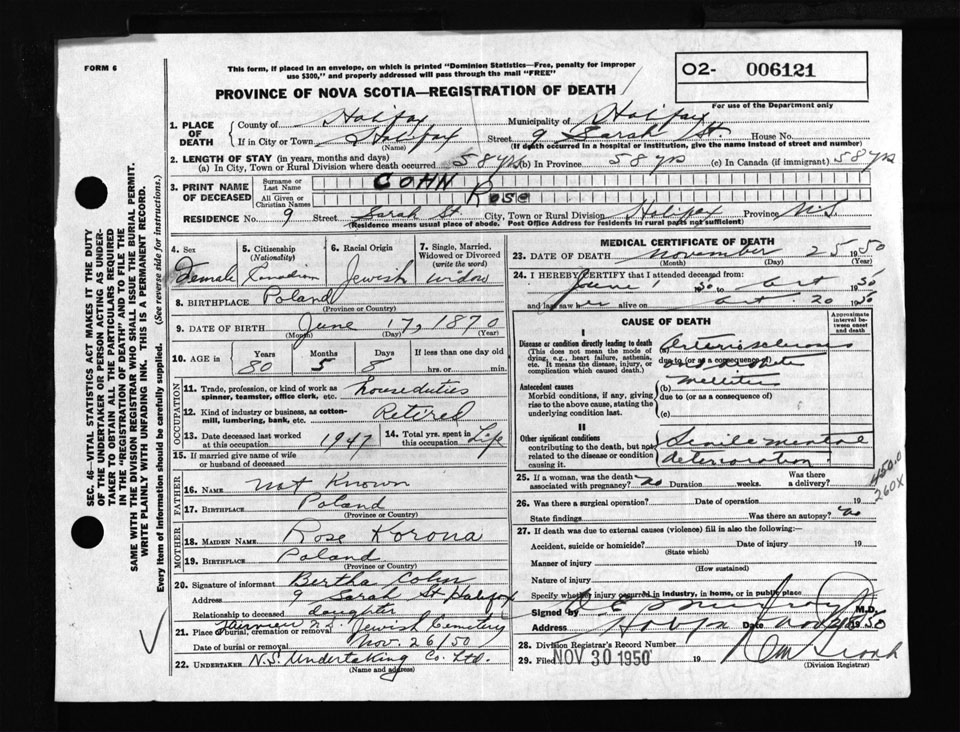 FORM 6
This form, if placed in an envelope, on which is printed "Dominion Statistics—Free, penalty for improper
use $300," and properly addressed will pass through the mail "FREE"
O2- 006121
PROVINCE OF NOVA SCOTIA—REGISTRATION OF DEATH
For use of the Department only
1. PLACE OF DEATH
County of Halifax Municipality of Halifax
If in City or Town Halifax Street 9 Sarah St House No.
(Name) (If death occurred in a hospital or institution, give the name instead of street and number)
2. LENGTH OF STAY (in years, months and days)
(a) In City, Town or Rural Division where death occurred 58 yrs (b) In Province 58 yrs (c) In Canada (if immigrant) 58 yrs
3. PRINT NAME OF DECEASED
Surname or Last Name COHN
All Given or Christian Names Rose
RESIDENCE No. 9 Street Sarah St. City, Town or Rural Division Halifax Province N.S.
(Residence means usual place of abode. Post Office Address for residents in rural parts not sufficient)
4. Sex Female
5. Citizenship (Nationality) Canadian
6. Racial Origin Jewish
7. Single, Married, Widowed or Divorced (write the word) widow
8. BIRTHPLACE Poland
(Province or Country)
9. DATE OF BIRTH June 17, 1870
(Month) (Day) (Year)
10. AGE in Years Months Days If less than one day old
80 5 8 hrs. or min.
OCCUPATION
11. Trade, profession, or kind of work as spinner, teamster, office clerk, etc. houseduties
12. Kind of industry or business, as cotton-mill, lumbering, bank, etc. Retired
13. Date deceased last worked at this occupation 1947
14. Total yrs. spent in this occupation Life
15. If married give name of wife or husband of deceased
FATHER
16. NAME not Known
17. BIRTHPLACE Poland
(Province or Country)
MOTHER
18. MAIDEN NAME Rose Korona
19. BIRTHPLACE Poland
(Province or Country)
20. Signature of informant Bertha Cohn
Address 9 Sarah St Halifax
Relationship to deceased daughter
21. Place of burial, cremation or removal Fairview N.S. Jewish Cemetery
Date of burial or removal Nov. 26/50
22. UNDERTAKER N.S. Undertaking Co. Ltd.
(Name and address)
MEDICAL CERTIFICATE OF DEATH
23. DATE OF DEATH November 25 1950
(Month) (Day) (Year)
24. I HEREBY CERTIFY that I attended deceased from:
June 1 1950 to Oct 1950
and last saw her alive on Oct. 20 1950
CAUSE OF DEATH
Approximate interval between onset and death
I
Disease or condition directly leading to death
(This does not mean the mode of dying, e.g., heart failure, asthenia, etc. It means the disease, injury, or complication which caused death.)
(a) Arteriosclerosis
due to (or as a consequence of)
Antecedent causes
Morbid conditions, if any, giving rise to the above cause, stating the underlying condition last.
(b) mellitus
due to (or as a consequence of)
(c)
II
Other significant conditions
contributing to the death, but not related to the disease or condition causing it.
Senile mental
deterioration
450.0
260X
25. If a woman, was the death associated with pregnancy? no Duration weeks. Was there a delivery?
26. Was there a surgical operation? Date of operation 19
State findings Was there an autopsy? no
27. If death was due to external causes (violence) fill in also the following:—
Accident, suicide or homicide? Date of injury 19
(State which)
Manner of injury
(How sustained)
Nature of injury
Specify whether injury occurred in industry, in home, or in public place
Signed by M.D.
Address Halifax Date 1950
28. Division Registrar's Record Number
29. Filed NOV 30 1950 19
(Division Registrar)
SEC. 46—VITAL STATISTICS ACT MAKES IT THE DUTY
OF THE UNDERTAKER OR PERSON ACTING AS UNDER-
TAKER TO OBTAIN ALL THE PARTICULARS REQUIRED
IN THE "REGISTRATION OF DEATH" AND TO FILE THE
SAME WITH THE DIVISION REGISTRAR WHO SHALL ISSUE THE BURIAL PERMIT.
WRITE PLAINLY WITH UNFADING INK. THIS IS A PERMANENT RECORD.
Every Item of Information should be carefully supplied. (See reverse side for instructions.)